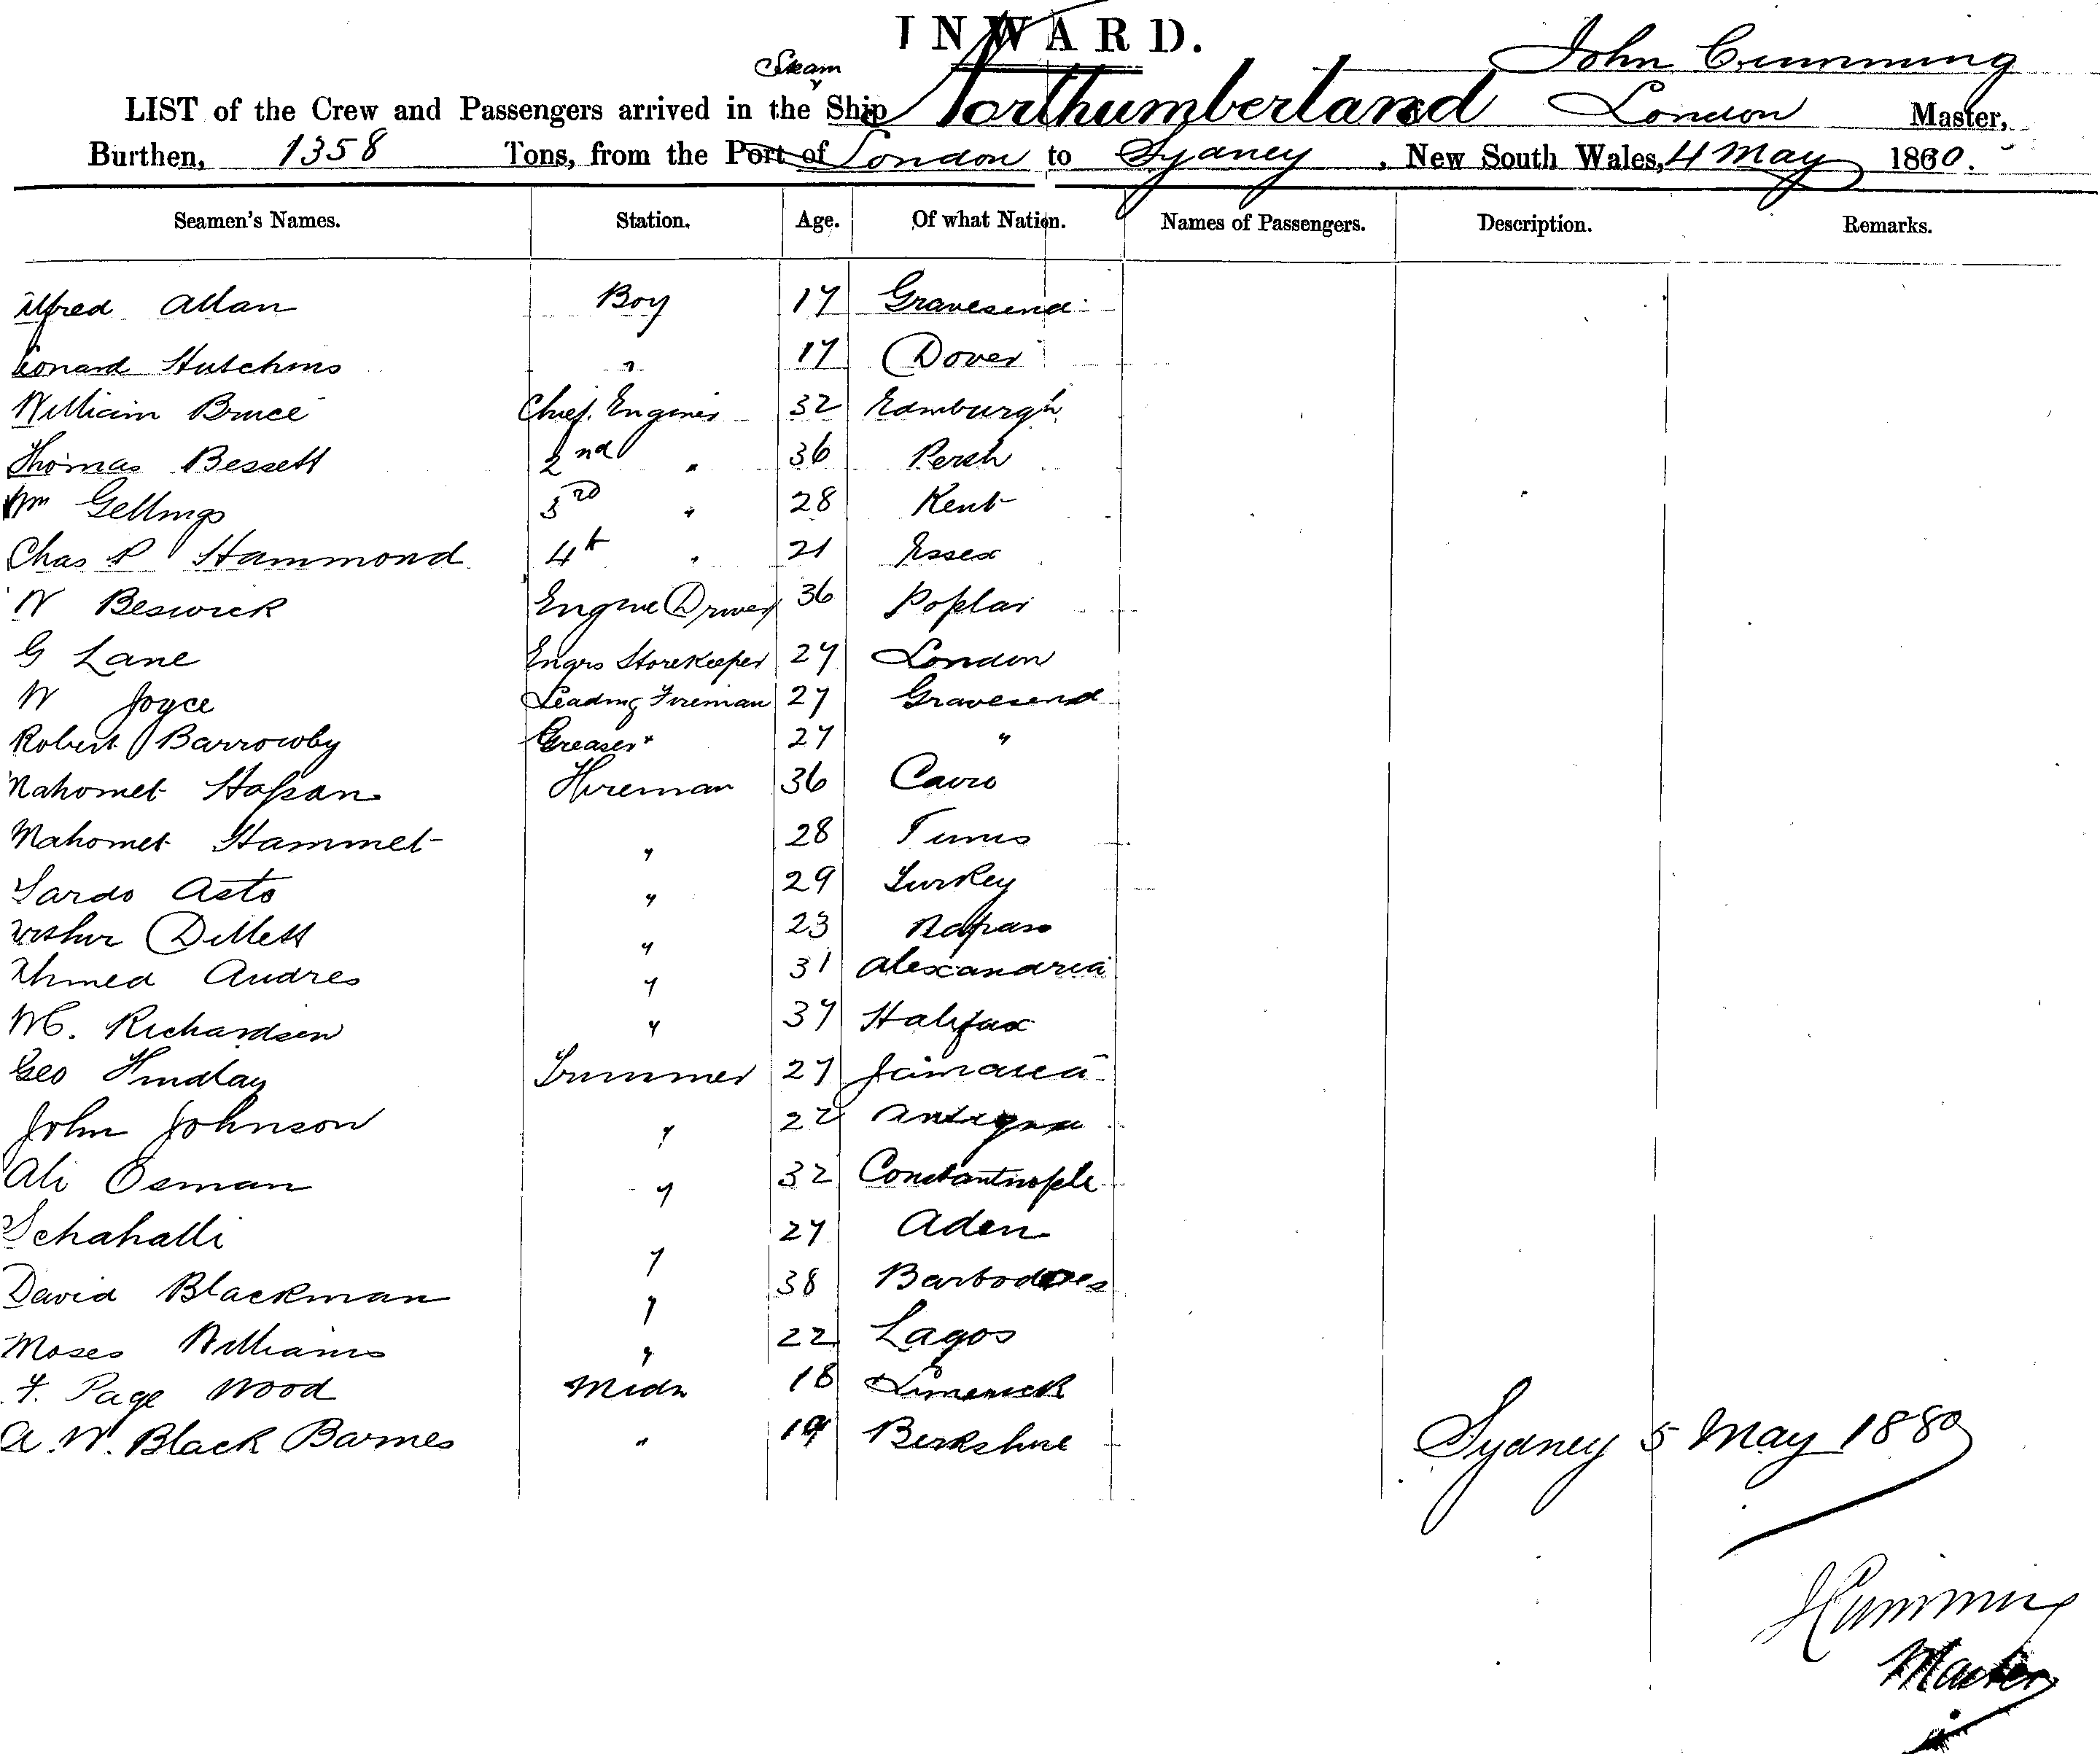 INWARD.
Steam John Cumming
LIST of the Crew and Passengers arrived in the Ship Northumberland London Master,
Burthen, 1358 Tons, from the Port of London to Sydney, New South Wales, 4 May 1880.
Seamen's Names. Station. Age. Of what Nation. Names of Passengers. Description. Remarks.
Alfred Allan Boy 17 Gravesend
Leonard Hutchins " 17 Dover
William Bruce Chief Engineer 32 Edinburgh
Thomas Bessett 2nd " 36 Perth
Wm Gellings 3rd " 28 Kent
Chas P Hammond 4th " 21 Essex
W Beswick Engine Driver 36 Poplar
G Lane Engrs Storekeeper 27 London
W Joyce Leading Fireman 27 Gravesend
Robert Barrowby Greaser 27 "
Mahomet Hassan Fireman 36 Cairo
Mahomet Hammet " 28 Tunis
Sardo Asto " 29 Turkey
Arthur Dillett " 23
Ahmed Audres " 31 Alexandria
W C. Richardson " 37 Halifax
Geo Hindlay Trimmer 27 Jamaica
John Johnson " 22 Antigua
Ali Osman " 32 Constantinople
Schahalli " 27 Aden
David Blackman " 38 Barbodoes
Moses Williams " 22 Lagos
F. Page Wood Midn 18 Limerick
A. W. Black Barnes " 19 Berkshire
Sydney 5 May 1880
J Cumming
Master